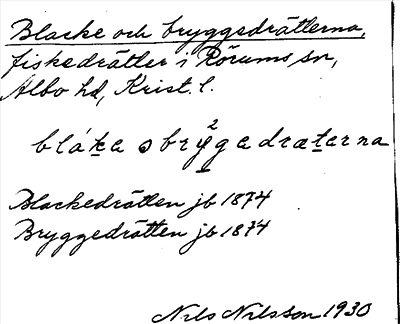 Blacke och bryggedrätterna,
fiskedrätter i Rörums sn,
Albo hd, Krist. l.
blák̲a ɔ brỳ²gedræt̲erna
Blackedrätten jb 1874
Bryggedrätten jb 1874
Nils Nilsson 1930